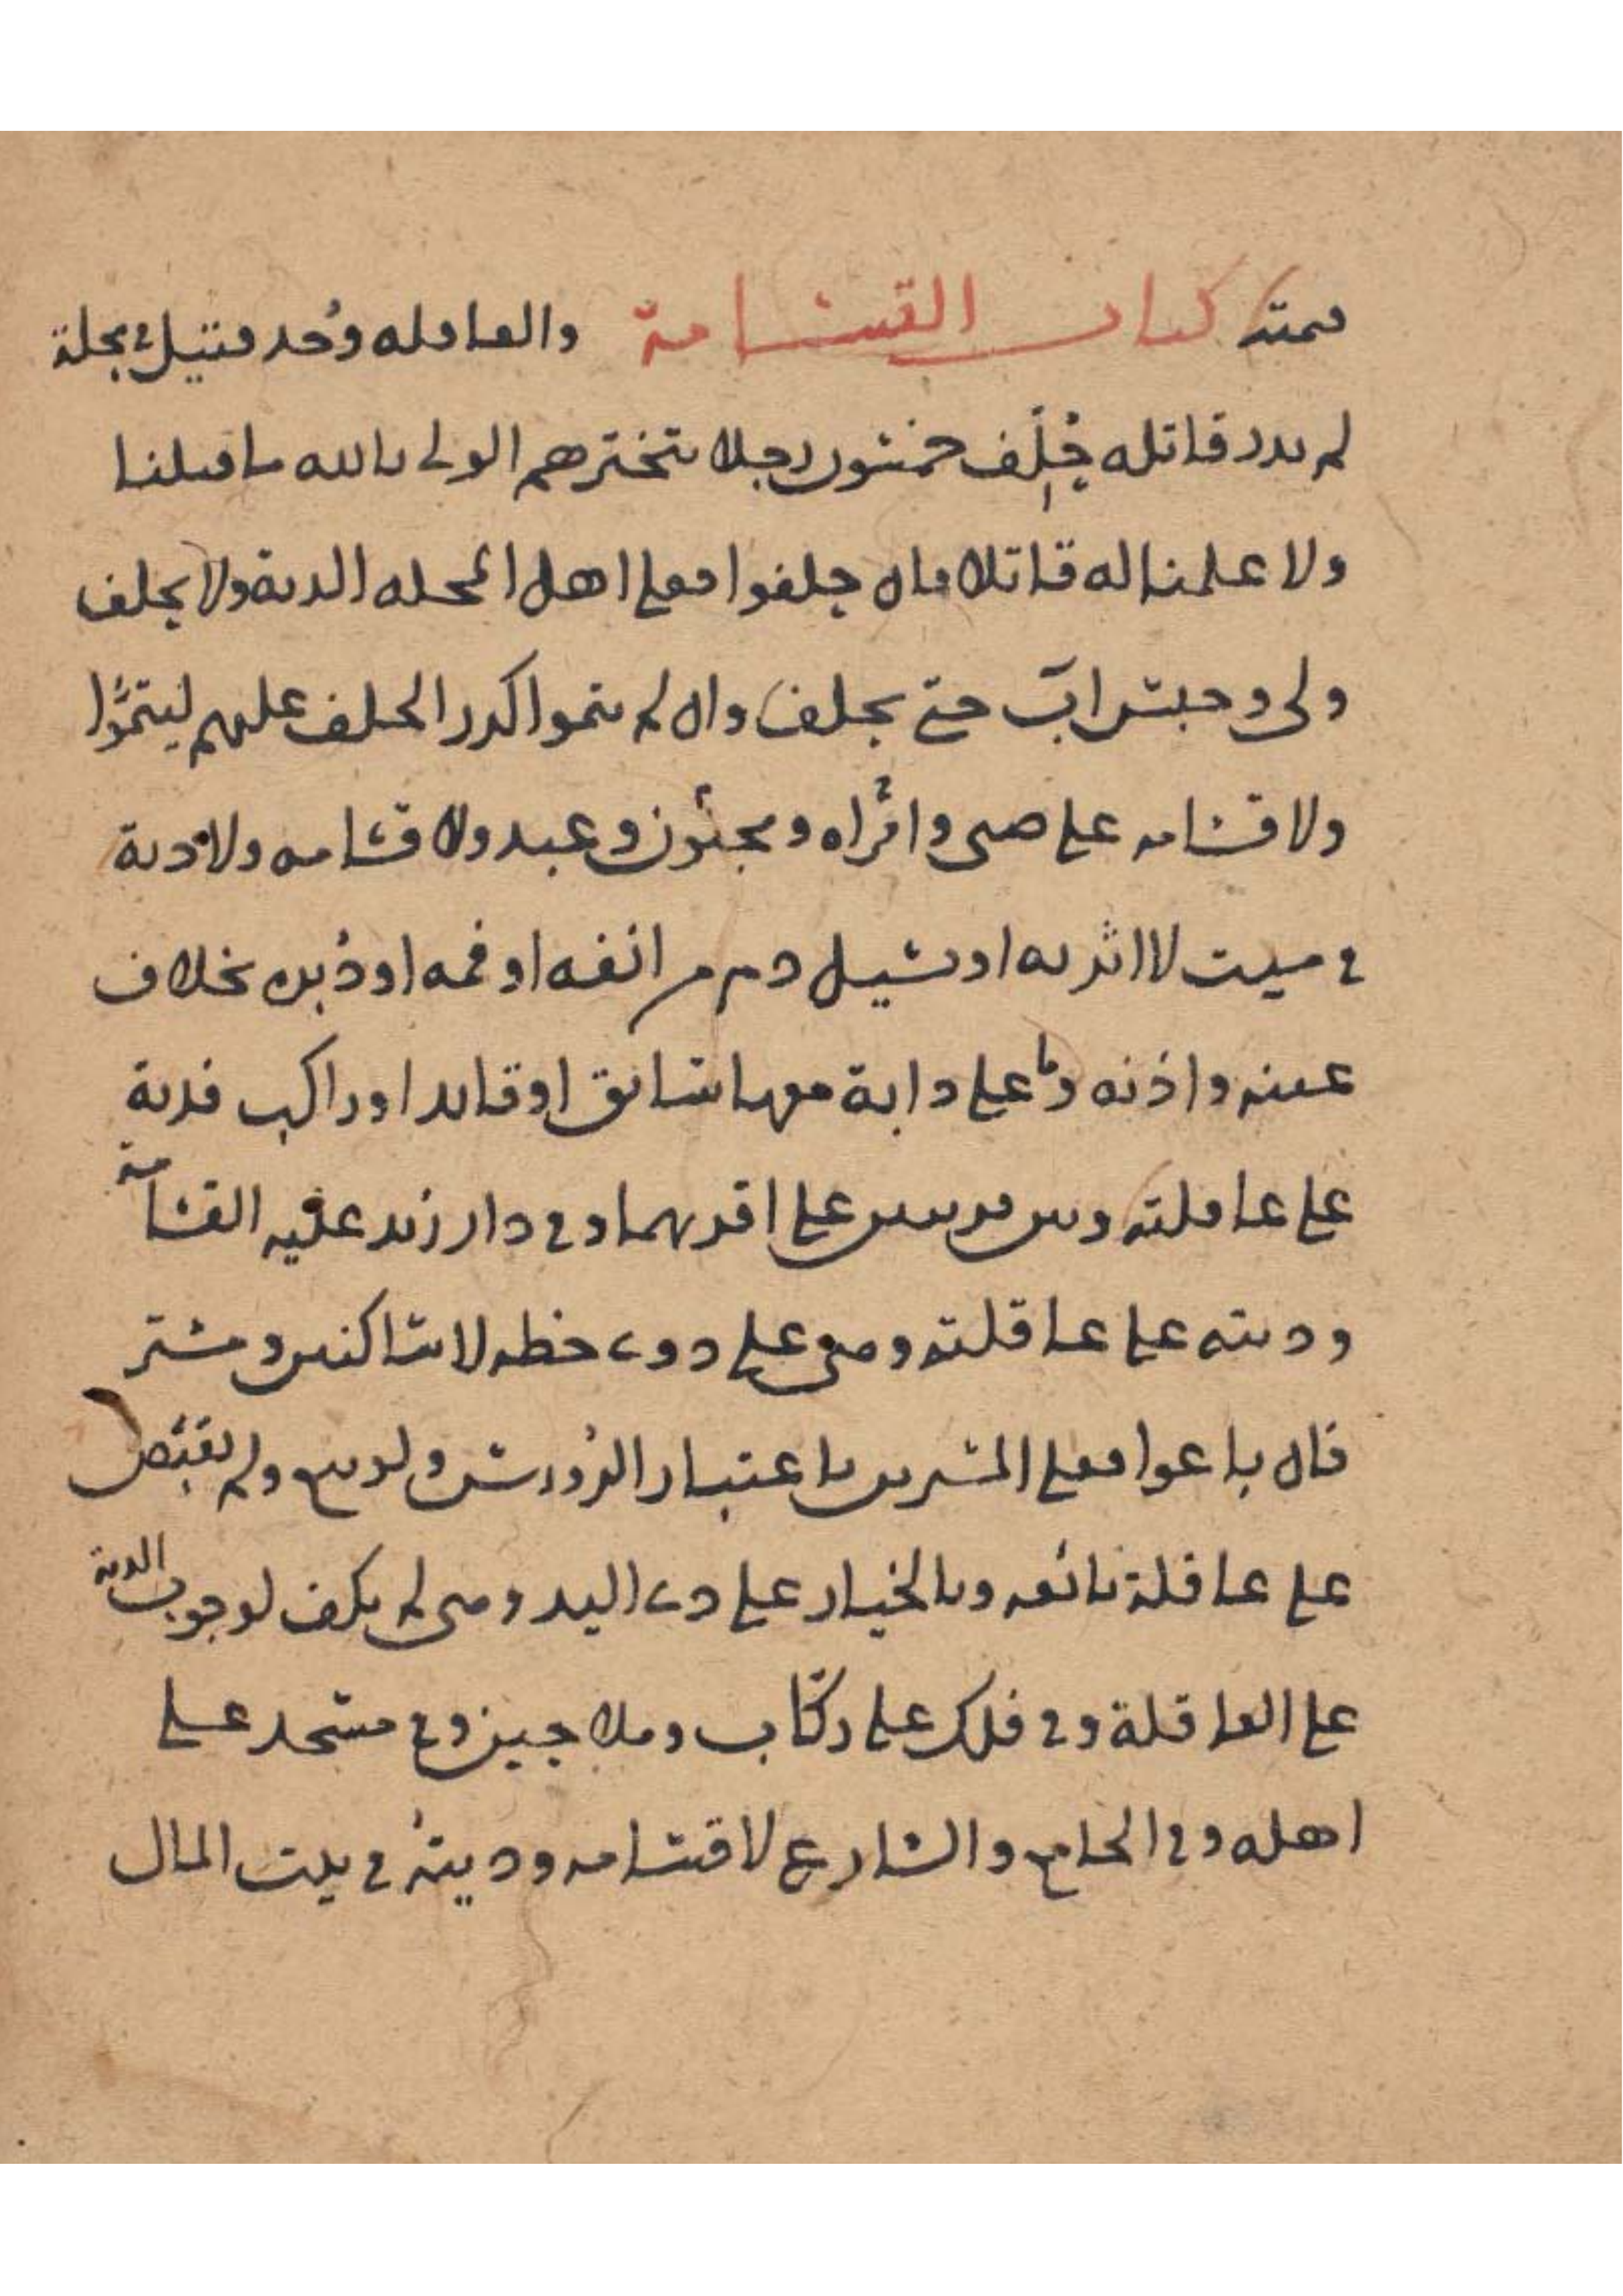 قيمته كتاب القسامة والعاقله وُجد قتيل في محلة
لم يدر قاتله حُلِّف خمسون رجلا يتخيرهم الولي بالله ما قتلنا
ولا علمنا له قاتلا فان حلفوا فعلى اهل المحله الدية ولا يحلف
ولي وحبس ابٍ حتى يحلف وان لم يتموا كرر الحلف عليهم ليتمُّوا
ولا قسامه على صبي وامراه ومجنون وعبد ولا قسامه ولا دية
في ميت لا اثر به او يسيل دم من انفه او فمه او دُبره بخلاف
عينه واذنه وما على دابة معها سائق او قائد او راكب فدية
على عاقلته وبين قريتين على اقربهما وفي دار زيد عليه القسامة
وديته على عاقلته وهي على ذوي خطه لا ساكنين ومشتر
فان باعوا فعلى المشترين باعتبار الرُؤوس ولو بيع ولم يقبض
على عاقلة بائعه وبالخيار على ذي اليد وهي لم يكف لوجوب الدية
على العاقلة وفي فلك على ركّاب وملاحين وفي مسجد على
اهله وفي الجامع والشارع لا قسامه وديتهُ في بيت المال